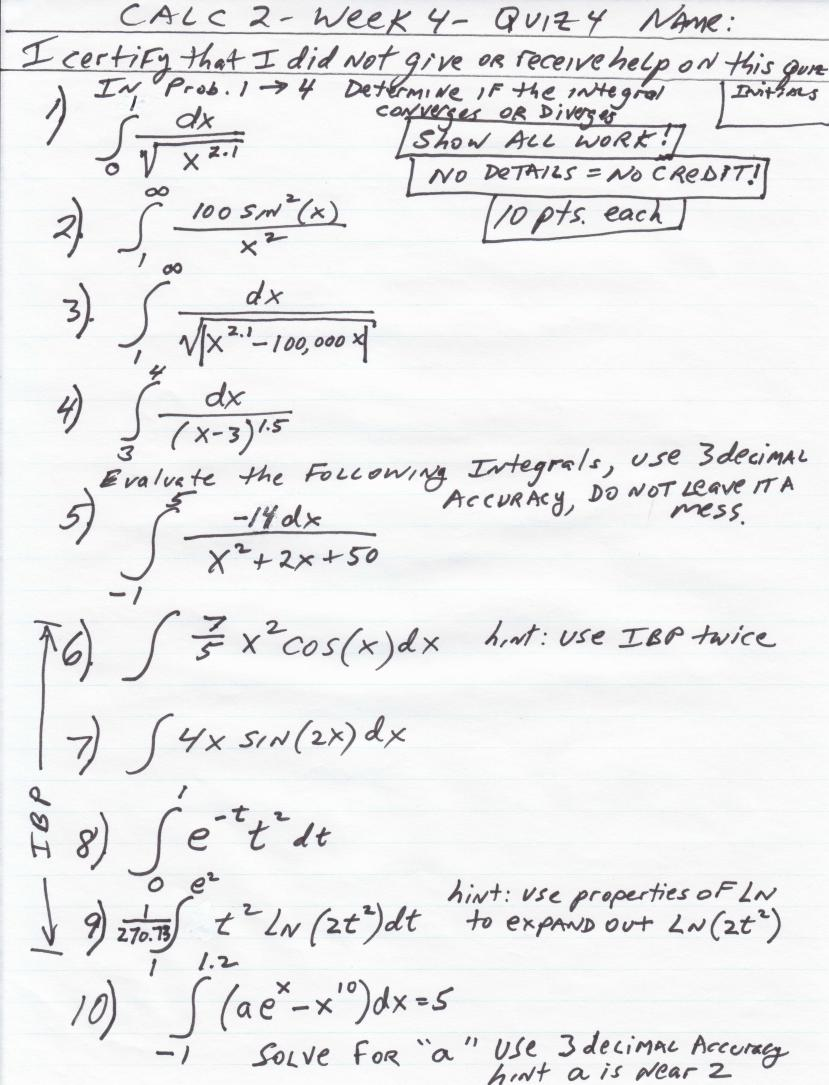 CALC 2 - Week 4 - QUIZ 4 NAME:
I certify that I did not give or receive help on this Quiz
In Prob. 1 → 4 Determine if the integral converges or Diverges
Initials
1) ∫₀¹ dx / √(x^2.1)
SHOW ALL WORK!
NO DETAILS = NO CREDIT!
10 pts. each
2). ∫₁^∞ 100 sin²(x) / x²
3). ∫₁^∞ dx / √|x^2.1 - 100,000 x|
4) ∫₃⁴ dx / (x-3)^1.5
Evaluate the Following Integrals, use 3 decimal
ACCURACY, DO NOT Leave IT A mess.
5) ∫₋₁⁵ -14 dx / (x² + 2x + 50)
IBP
6). ∫ 7/5 x² cos(x) dx hint: use IBP twice
7) ∫ 4x SIN(2x) dx
8) ∫₀¹ e^-t t² dt
9) 1/270.73 ∫₁^e² t² LN(2t²) dt
hint: use properties of LN
to expand out LN(2t²)
10) ∫₋₁^1.2 (ae^x - x^10) dx = 5
SOLVE FOR "a" USE 3 decimal Accuracy
hint a is near 2